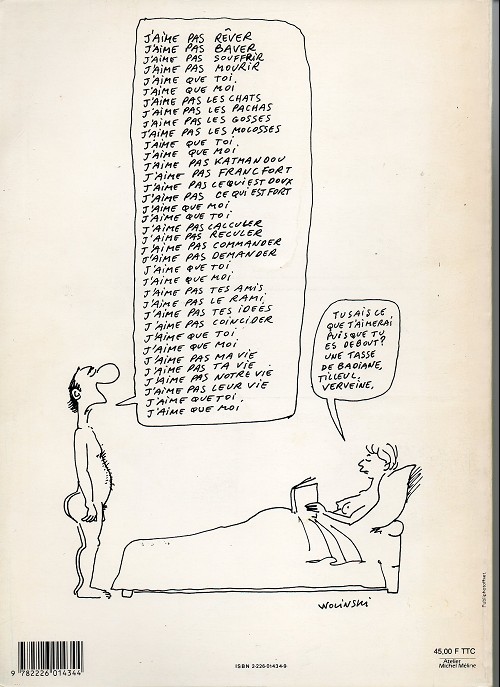 J'AIME PAS RÊVER
J'AIME PAS BAVER
J'AIME PAS SOUFFRIR
J'AIME PAS MOURIR
J'AIME QUE TOI.
J'AIME QUE MOI
J'AIME PAS LES CHATS
J'AIME PAS LES PACHAS
J'AIME PAS LES GOSSES
J'AIME PAS LES MOLOSSES
J'AIME QUE TOI.
J'AIME QUE MOI
J'AIME PAS KATMANDOU
J'AIME PAS FRANCFORT
J'AIME PAS CE QUI EST DOUX
J'AIME PAS CE QUI EST FORT
J'AIME QUE MOI
J'AIME QUE TOI
J'AIME PAS CALCULER
J'AIME PAS RECULER
J'AIME PAS COMMANDER
J'AIME PAS DEMANDER
J'AIME QUE TOI
J'AIME QUE MOI.
J'AIME PAS TES AMIS
J'AIME PAS LE RAMI
J'AIME PAS TES IDEES
J'AIME PAS COINCIDER
J'AIME QUE TOI
J'AIME QUE MOI
J'AIME PAS MA VIE
J'AIME PAS TA VIE
J'AIME PAS NOTRE VIE
J'AIME PAS LEUR VIE
J'AIME QUE TOI.
J'AIME QUE MOI
TU SAIS CE
QUE J'AIMERAI
PUISQUE TU
ES DEBOUT?
UNE TASSE
DE BADIANE,
TILLEUL.
VERVEINE.
WOLINSKI
45,00 F TTC
Atelier
Michel Méline
ISBN 2-226-01434-9
9 782226 014344